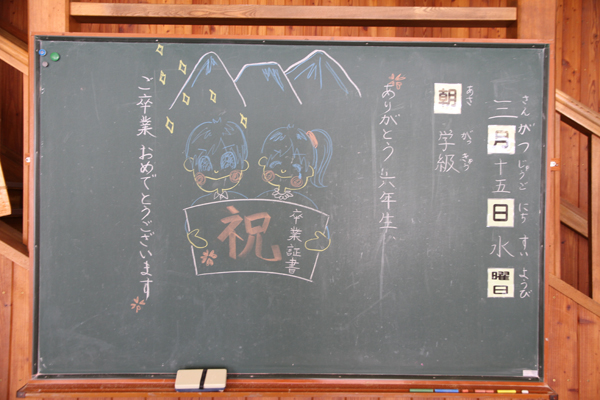 さん がつ じゅうご にち すい ようび
三月十五日水曜日
あさ がっきゅう
朝 学級
ありがとう 六年生
卒業証書
祝
ご卒業 おめでとうございます